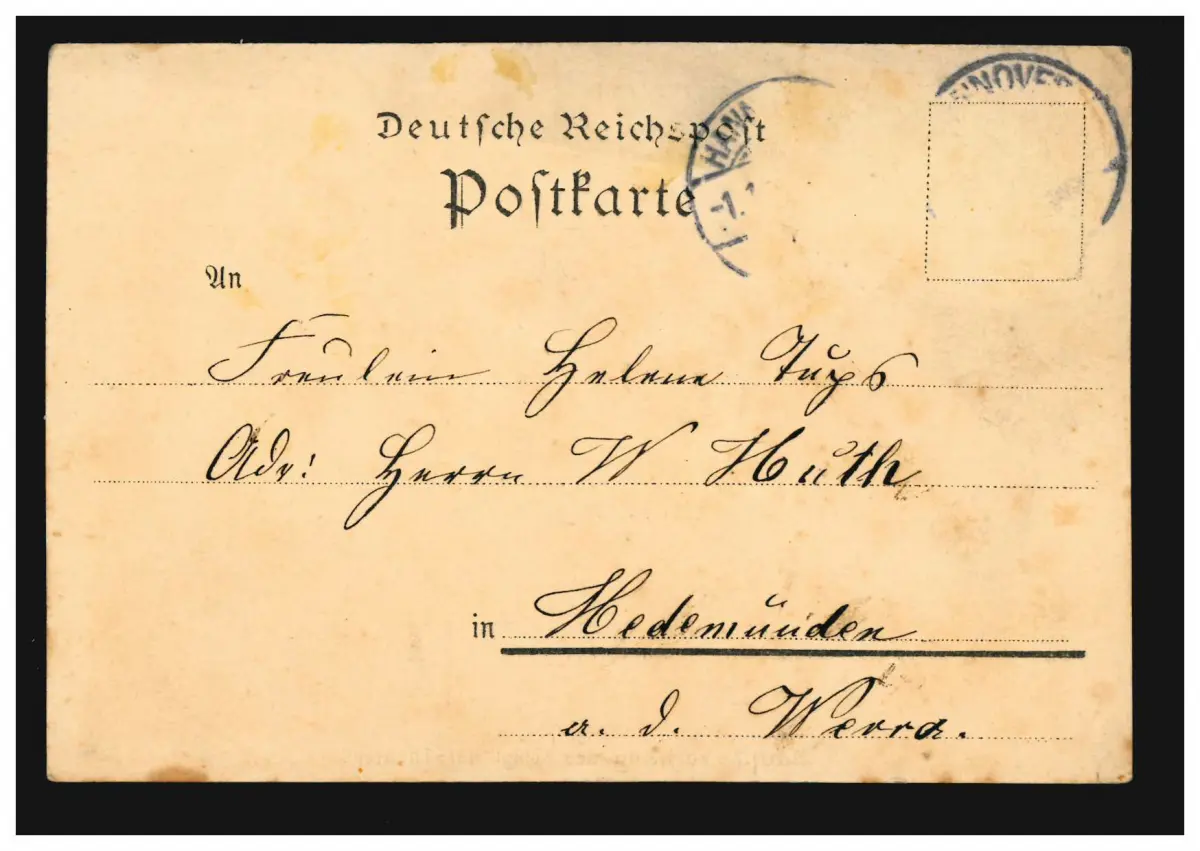 Deutsche Reichspost
Postkarte
HAN
NNOVER
-1.
An
Fräulein Helene
Adr: Herrn W Huth
in Hedemünden
a. d. Werra.